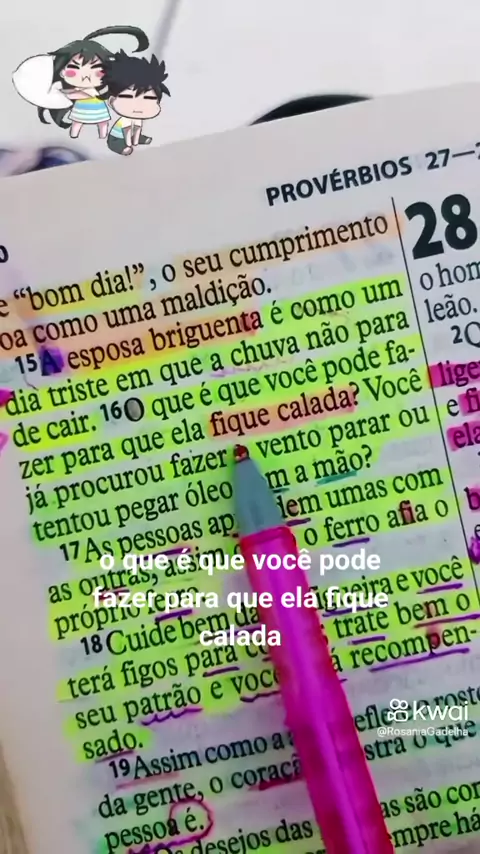 PROVÉRBIOS 27—2
28
e “bom dia!”, o seu cumprimento
oa como uma maldição.
15 A esposa briguenta é como um
dia triste em que a chuva não para
de cair. 16 O que é que você pode fa-
zer para que ela fique calada? Você
já procurou fazer o vento parar ou
tentou pegar óleo m a mão?
17 As pessoas ap em umas com
as outras, assim o ferro afia o
próprio
18 Cuide bem da figueira e você
terá figos para trate bem o
seu patrão e você á recompen-
sado.
19 Assim como a reflete o rosto
da gente, o coraçã stra o que
pessoa é.
Os desejos das as são com
empre há
o hom
leão.
2 Q
lige
e fi
ela
o que é que você pode
fazer para que ela fique
calada
kwai
@RosaniaGadelha